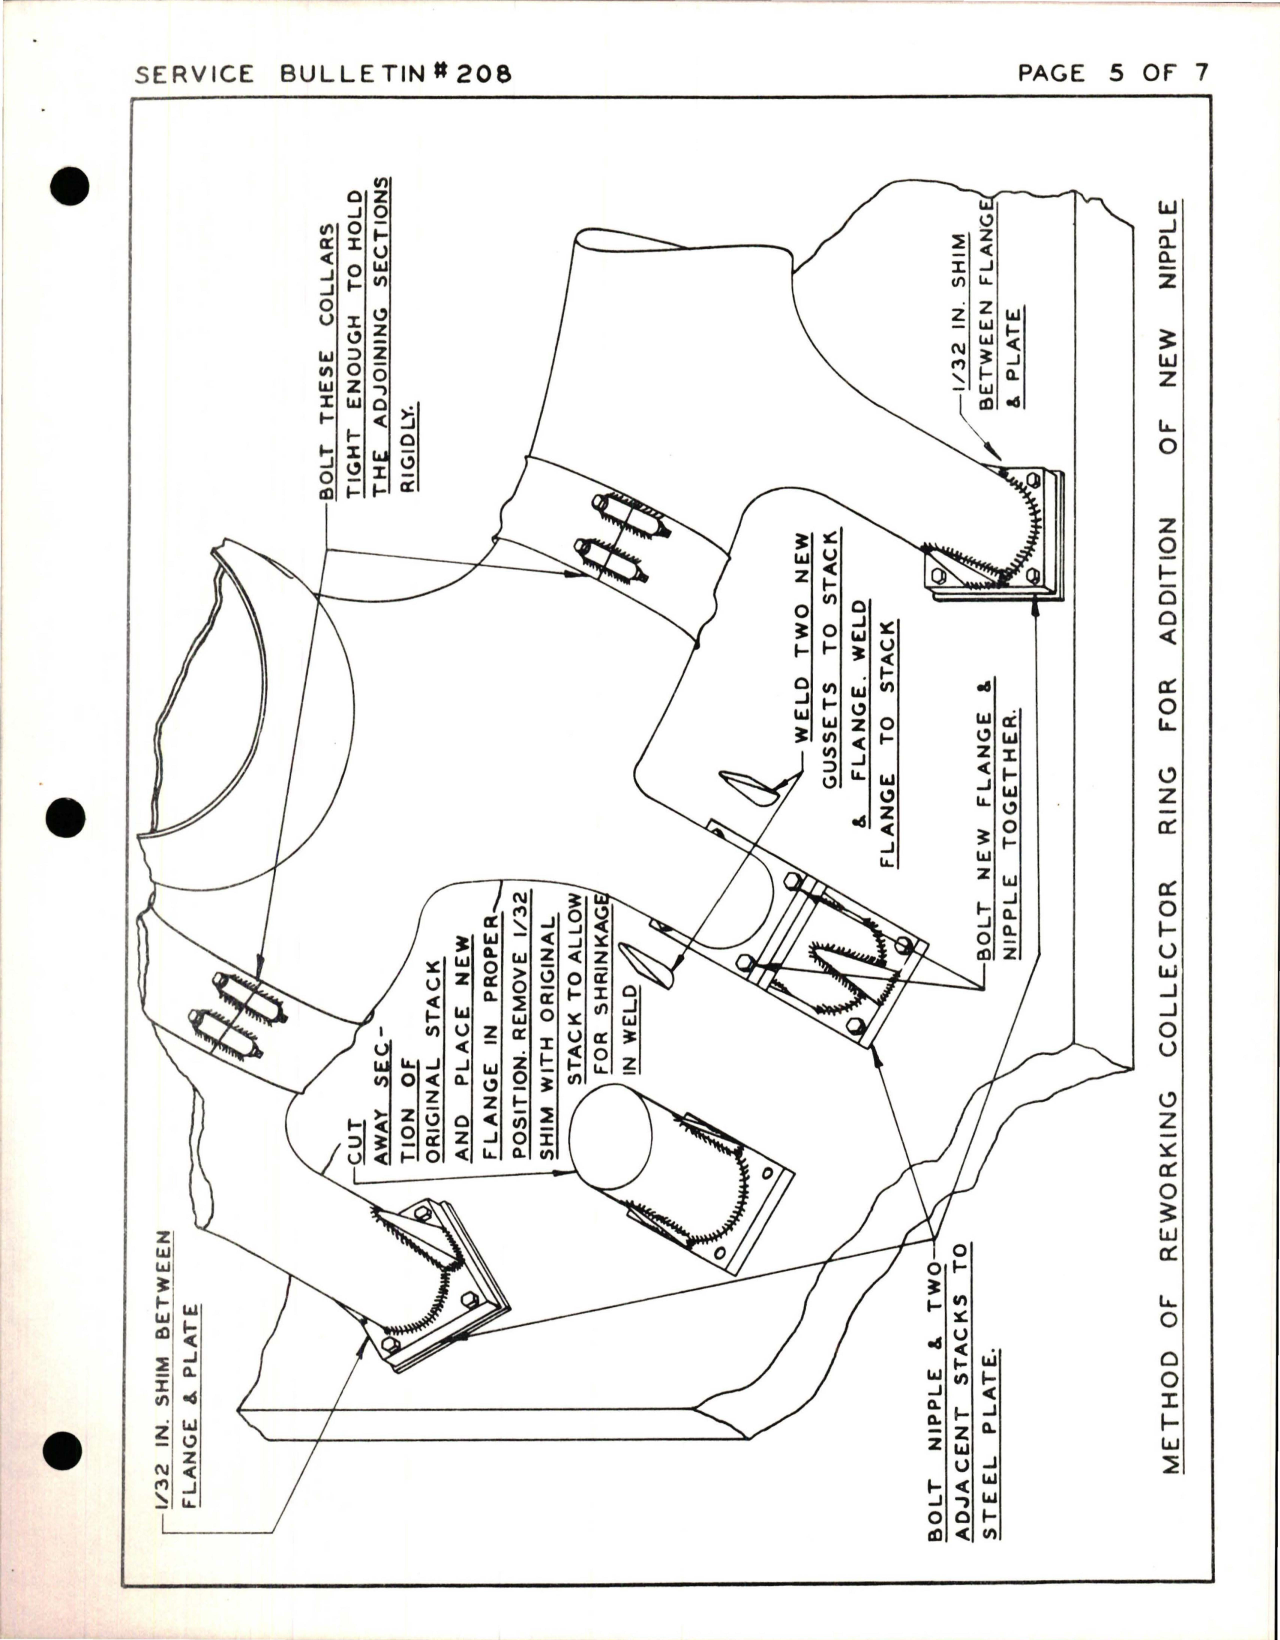 SERVICE BULLETIN # 208
PAGE 5 OF 7
1/32 IN. SHIM BETWEEN
FLANGE & PLATE
BOLT THESE COLLARS
TIGHT ENOUGH TO HOLD
THE ADJOINING SECTIONS
RIGIDLY.
CUT
AWAY SEC-
TION OF
ORIGINAL STACK
AND PLACE NEW
FLANGE IN PROPER
POSITION. REMOVE 1/32
SHIM WITH ORIGINAL
STACK TO ALLOW
FOR SHRINKAGE
IN WELD
WELD TWO NEW
GUSSETS TO STACK
& FLANGE. WELD
FLANGE TO STACK
1/32 IN. SHIM
BETWEEN FLANGE
& PLATE
BOLT NEW FLANGE &
NIPPLE TOGETHER.
BOLT NIPPLE & TWO
ADJACENT STACKS TO
STEEL PLATE.
METHOD OF REWORKING COLLECTOR RING FOR ADDITION OF NEW NIPPLE